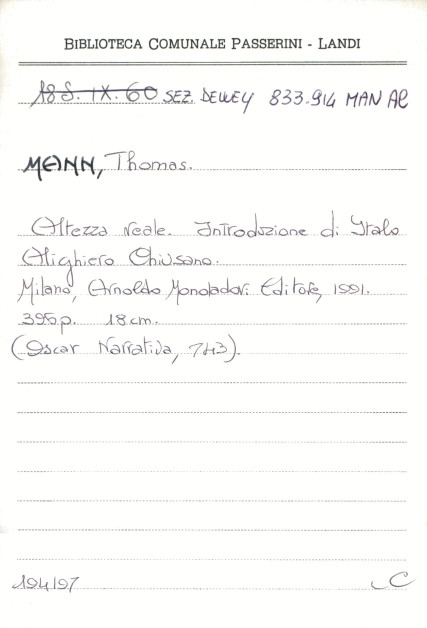 BIBLIOTECA COMUNALE PASSERINI - LANDI
18 S. IX. 60 SEZ. DEWEY 833.914 MAN AL
MANN, Thomas.
Altezza reale. Introduzione di Italo
Alighiero Chiusano.
Milano, Arnoldo Mondadori Editore, 1991.
395p. 18 cm.
(Oscar Narrativa, 743).
194197 C